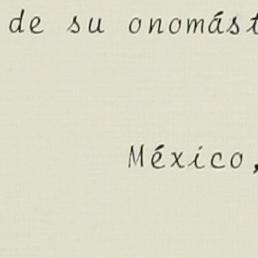 de su onomást
México,